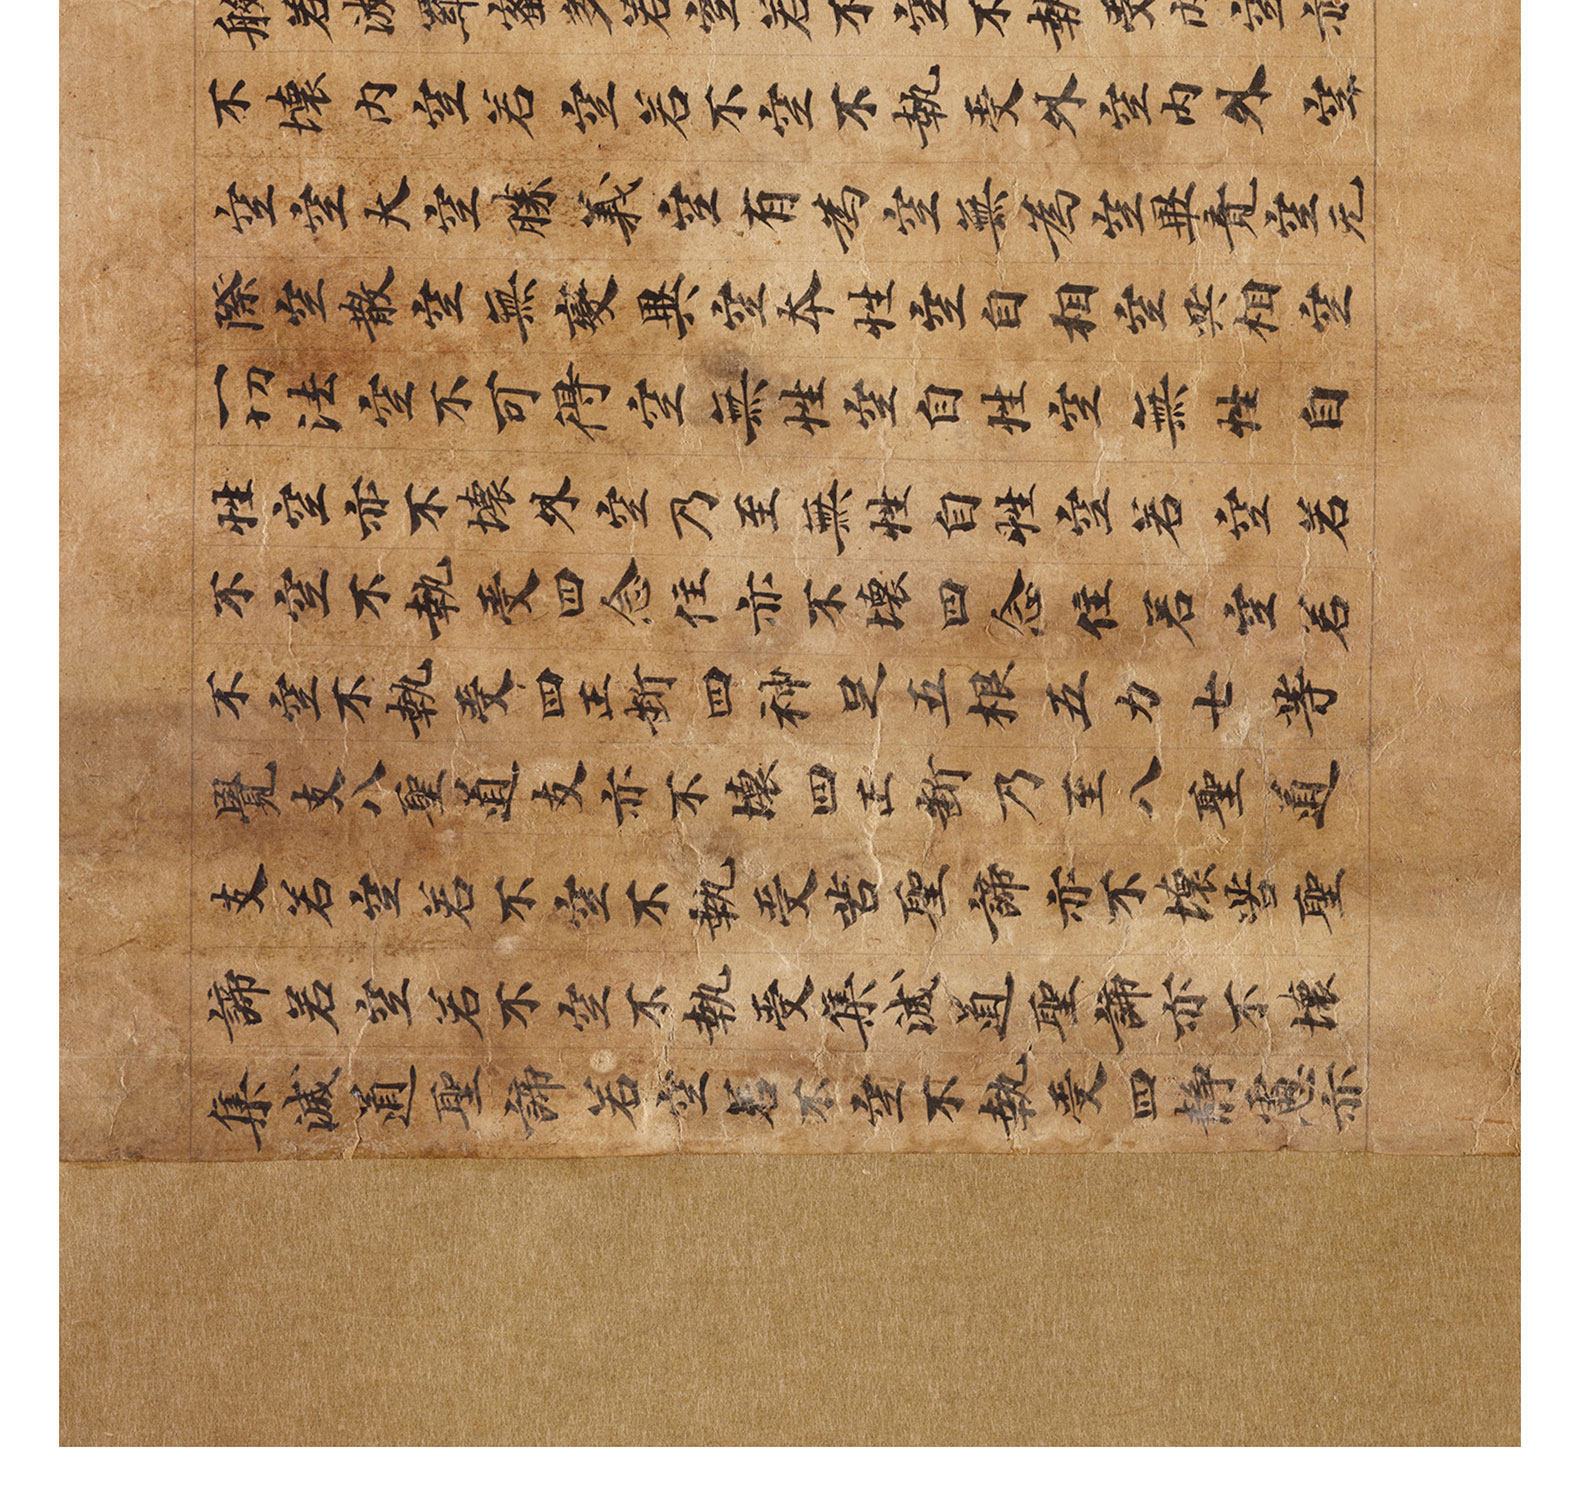 般若波羅蜜多若空若不空不執受内空亦
不壞内空若空若不空不執受外空内外空
空空大空勝義空有為空無為空畢竟空无
際空散空無變異空本性空自相空共相空
一切法空不可得空無性空自性空無性自
性空亦不壞外空乃至無性自性空若空若
不空不執受四念住亦不壞四念住若空若
不空不執受四正斷四神足五根五力七等
覺支八聖道支亦不壞四正斷乃至八聖道
支若空若不空不執受苦聖諦亦不壞苦聖
諦若空若不空不執受集滅道聖諦亦不壞
集滅道聖諦若空若不空不執受四靜慮亦